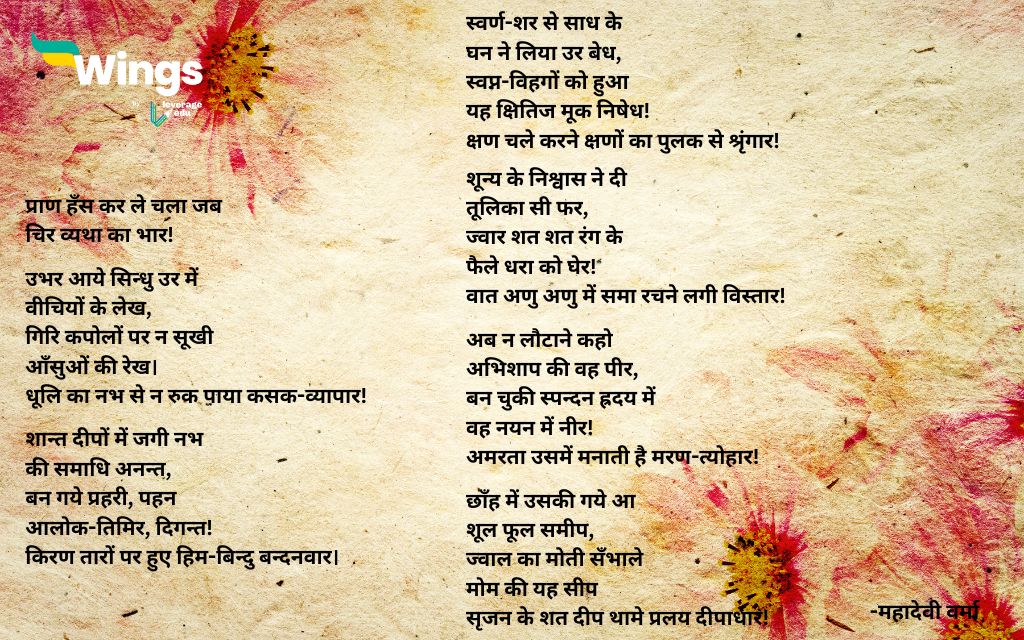 Wings
by leverage edu
प्राण हँस कर ले चला जब
चिर व्यथा का भार!
उभर आये सिन्धु उर में
वीचियों के लेख,
गिरि कपोलों पर न सूखी
आँसुओं की रेख।
धूलि का नभ से न रुक पाया कसक-व्यापार!
शान्त दीपों में जगी नभ
की समाधि अनन्त,
बन गये प्रहरी, पहन
आलोक-तिमिर, दिगन्त!
किरण तारों पर हुए हिम-बिन्दु बन्दनवार।
स्वर्ण-शर से साध के
घन ने लिया उर बेध,
स्वप्न-विहगों को हुआ
यह क्षितिज मूक निषेध!
क्षण चले करने क्षणों का पुलक से श्रृंगार!
शून्य के निश्वास ने दी
तूलिका सी फर,
ज्वार शत शत रंग के
फैले धरा को घेर!
वात अणु अणु में समा रचने लगी विस्तार!
अब न लौटाने कहो
अभिशाप की वह पीर,
बन चुकी स्पन्दन ह्रदय में
वह नयन में नीर!
अमरता उसमें मनाती है मरण-त्योहार!
छाँह में उसकी गये आ
शूल फूल समीप,
ज्वाल का मोती सँभाले
मोम की यह सीप
सृजन के शत दीप थामे प्रलय दीपाधार!
-महादेवी वर्मा